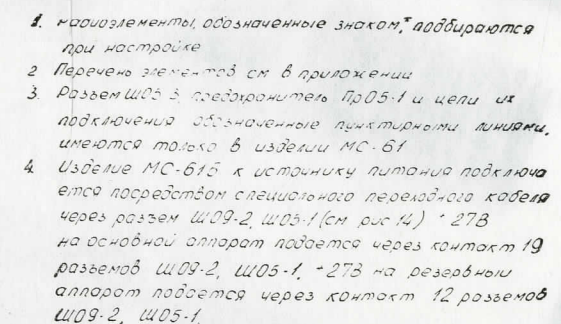 1. Радиоэлементы, обозначенные знаком,* подбираются
при настройке
2 Перечень элементов см в приложении
3. Разъем Ш05-3, предохранитель Пр05-1 и цепи их
подключения обозначенные пунктирными линиями,
имеются только в изделии МС-61
4. Изделие МС-615 к источнику питания подключа
ется посредством специального переходного кабеля
через разъем Ш09-2, Ш05-1 (см рис 14) +27В
на основной аппарат подается через контакт 19
разъемов Ш09-2, Ш05-1. +27В на резервный
аппарат подается через контакт 12 разъемов
Ш09-2, Ш05-1.